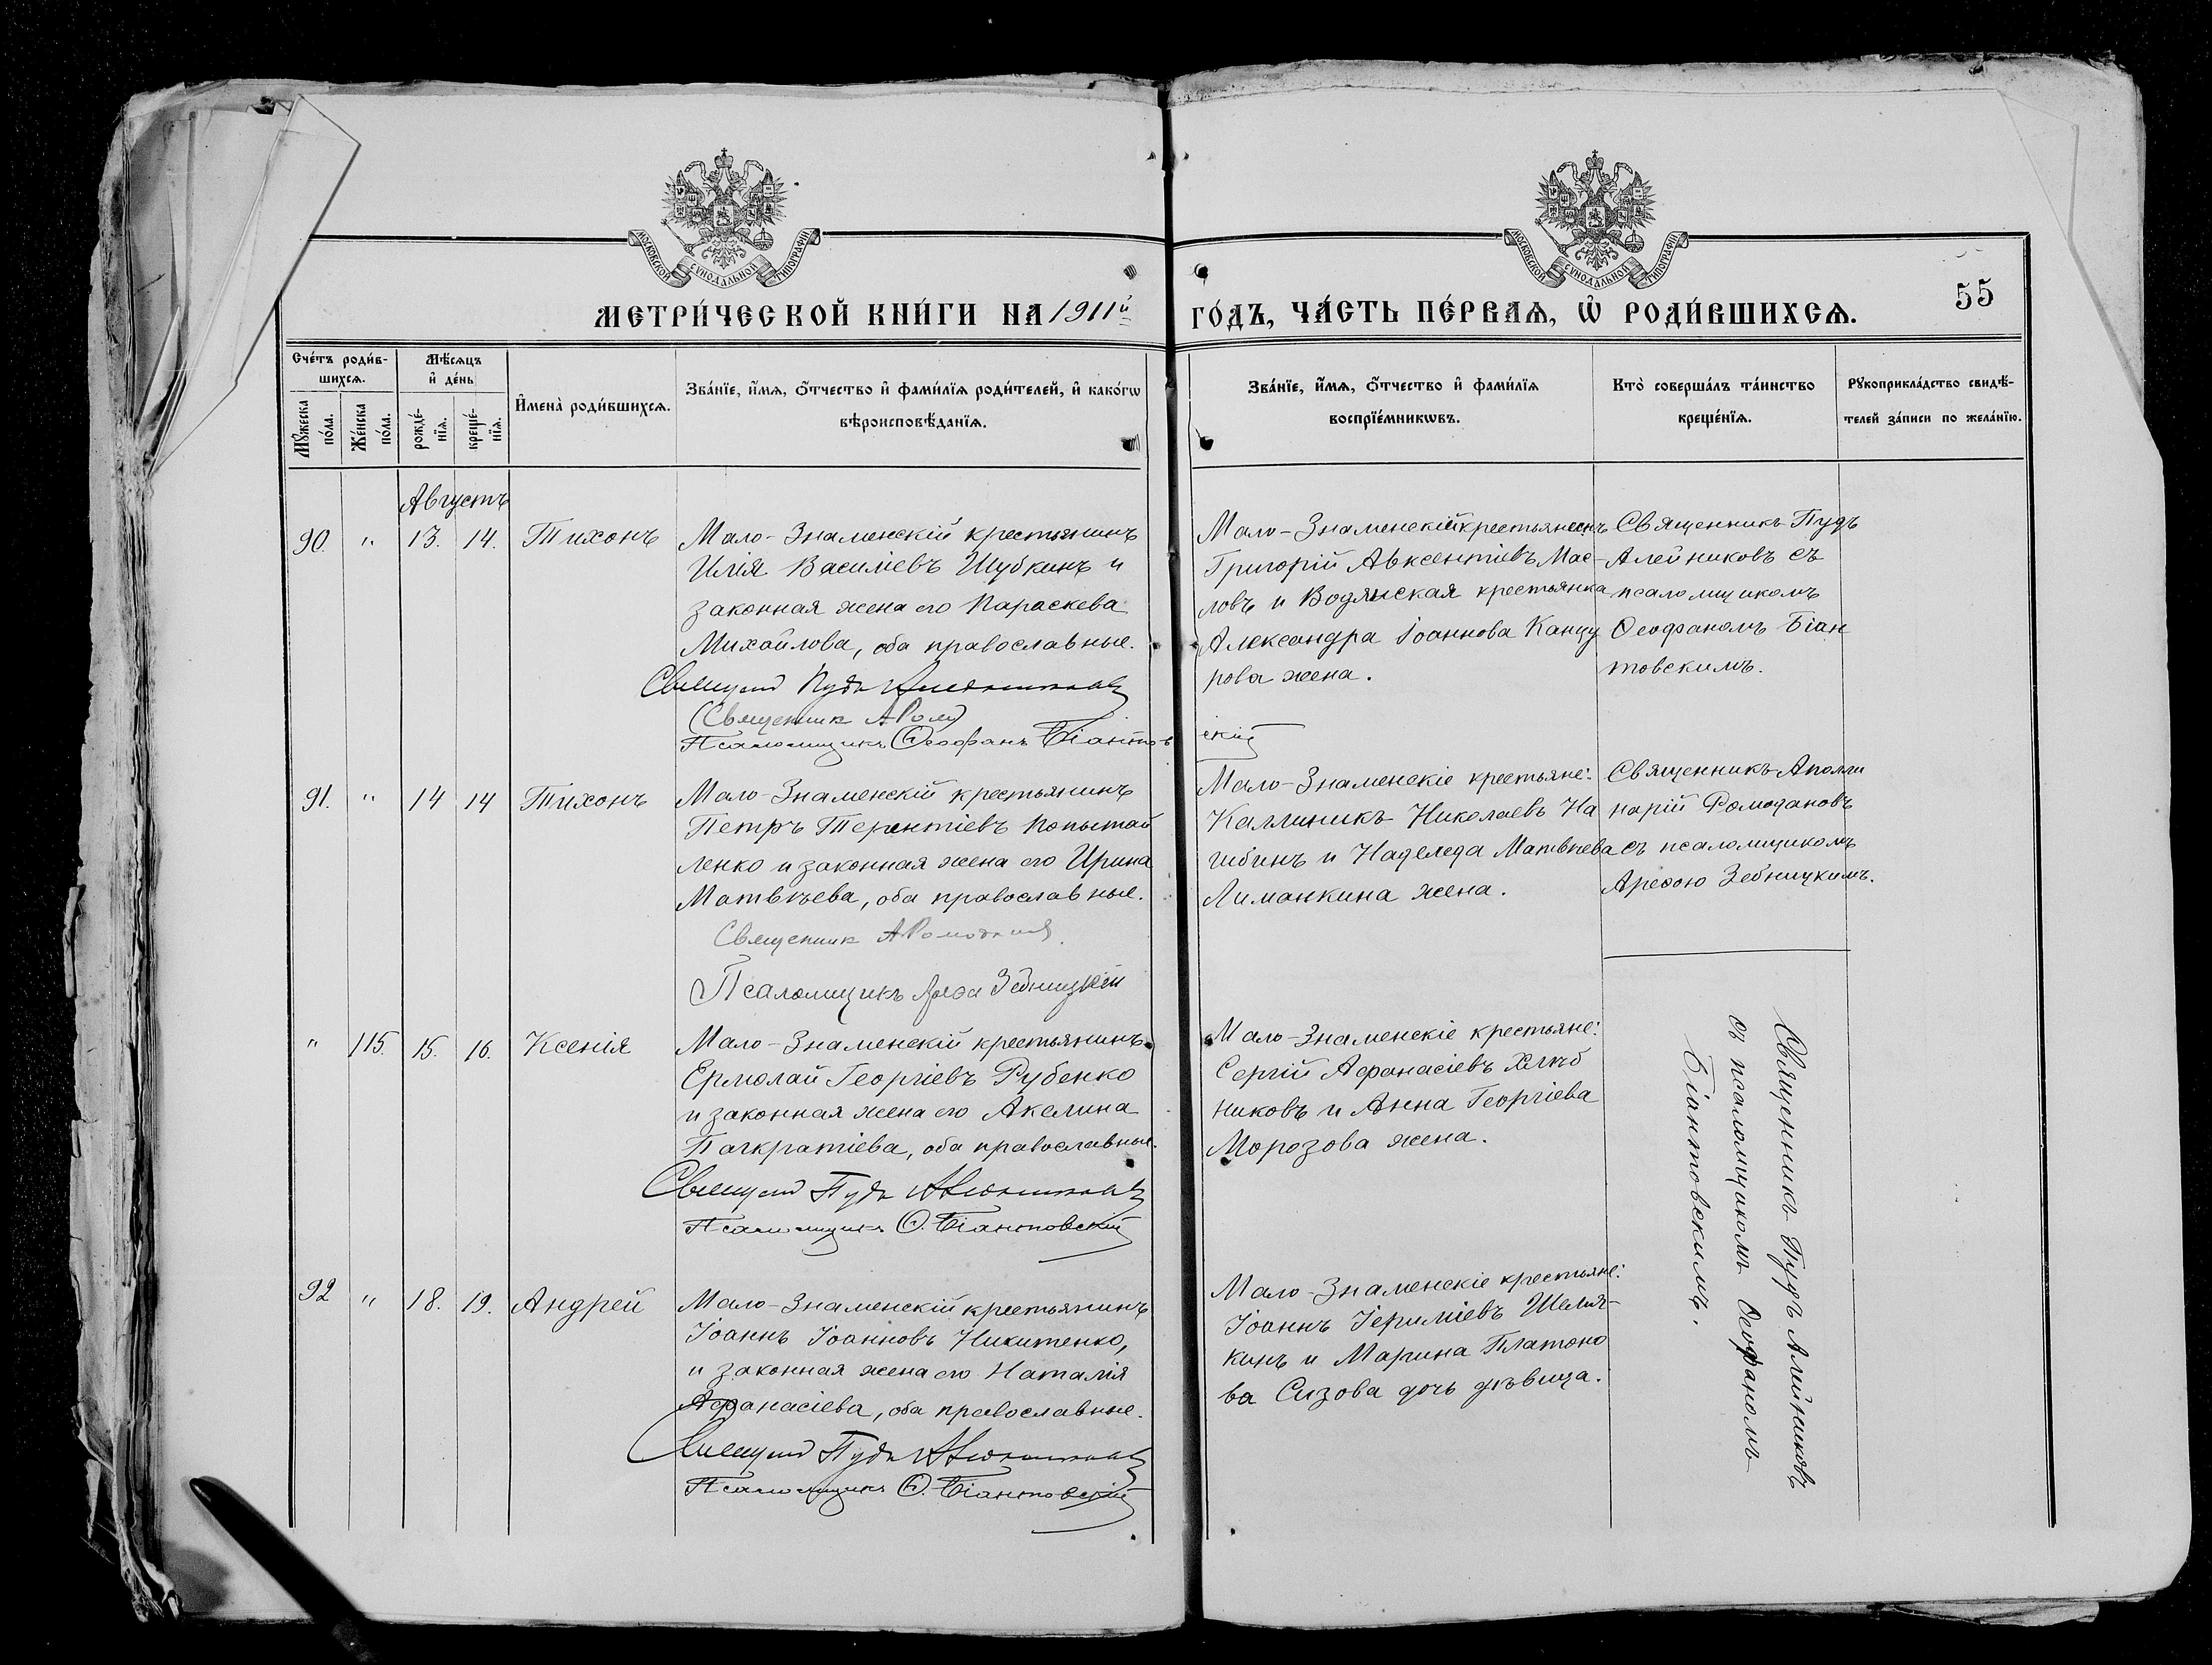 МОСКОВСКОЙ СѴНОДАЛЬНОЙ ТИПОГРАФІИ
МОСКОВСКОЙ СѴНОДАЛЬНОЙ ТИПОГРАФІИ
55
МЕТРИ́ЧЕСКОЙ КНИ́ГИ НА 1911й ГО́ДЪ, ЧА́СТЬ ПЕ́РВАѦ, Ѡ҆ РОДИ́ВШИХСѦ.
Сче́тъ роди́в-
шихсѧ.
Мꙋ́жеска по́ла.
Же́нска по́ла.
Мѣ́сѧцъ
и҆ де́нь
рожде́-
нїѧ.
креще́-
нїѧ.
И҆мена̀ роди́вшихсѧ.
Зва́нїе, и҆́мѧ, ѻ҆́тчество и҆ фами́лїѧ роди́телей, и҆ како́гѡ
вѣроисповѣ́данїѧ.
Зва́нїе, и҆́мѧ, ѻ҆́тчество и҆ фами́лїѧ
воспрїе́мникѡвъ.
Кто̀ соверша́лъ та́инство
креще́нїѧ.
Рꙋкоприкла́дство свидѣ́-
телей за́писи по жела́нїю.
Августъ
90. " 13. 14. Тихонъ
Мало-Знаменскій крестьянинъ
Илія Василіевъ Шубкинъ и
законная жена его Параскева
Михайлова, оба православные.
Священникъ Пудъ Алейниковъ
(Священник А Ром)
Псаломщикъ Ѳеофанъ Біантовскій
Мало-Знаменскій крестьянинъ
Григорій Авксентіевъ Мас-
ловъ и Водянская крестьянка
Александра Іоаннова Канцу
рова жена.
Священникъ Пудъ
Алейниковъ съ
псаломщикомъ
Ѳеофаномъ Біан
товскимъ.
91. " 14 14 Тихонъ
Мало-Знаменскій крестьянинъ
Петръ Терентіевъ Копытай
ленко и законная жена его Ирина
Матвѣева, оба православные.
Священник А Ромоданов
Псаломщикъ Ареѳа Зебницкій
Мало-Знаменскіе крестьяне:
Каллиникъ Николаевъ На
гибинъ и Надежда Матвѣева
Лиманкина жена.
Священникъ Аполли
нарій Ромодановъ
съ псаломщикомъ
Ареѳою Зебницкимъ.
" 115. 15. 16. Ксенія
Мало-Знаменскій крестьянинъ
Ермолай Георгіевъ Рубенко
и законная жена его Акелина
Панкратіева, оба православные.
Священникъ Пудъ Алейниковъ
Псаломщикъ Ѳ. Біантовскій
Мало-Знаменскіе крестьяне:
Сергій Аѳанасіевъ Хлѣб
никовъ и Анна Георгіева
Морозова жена.
Священникъ Пудъ Алейниковъ
съ псаломщикомъ Ѳеофаномъ
Біантовскимъ.
92 " 18. 19. Андрей
Мало-Знаменскій крестьянинъ
Іоаннъ Іоанновъ Никитенко,
и законная жена его Наталія
Афанасіева, оба православные.
Священникъ Пудъ Алейниковъ
Псаломщикъ Ѳ. Біантовскій
Мало-Знаменскіе крестьяне:
Іоаннъ Іериміевъ Шеляг-
кинъ и Марина Платоно
ва Сизова дочь дѣвица.